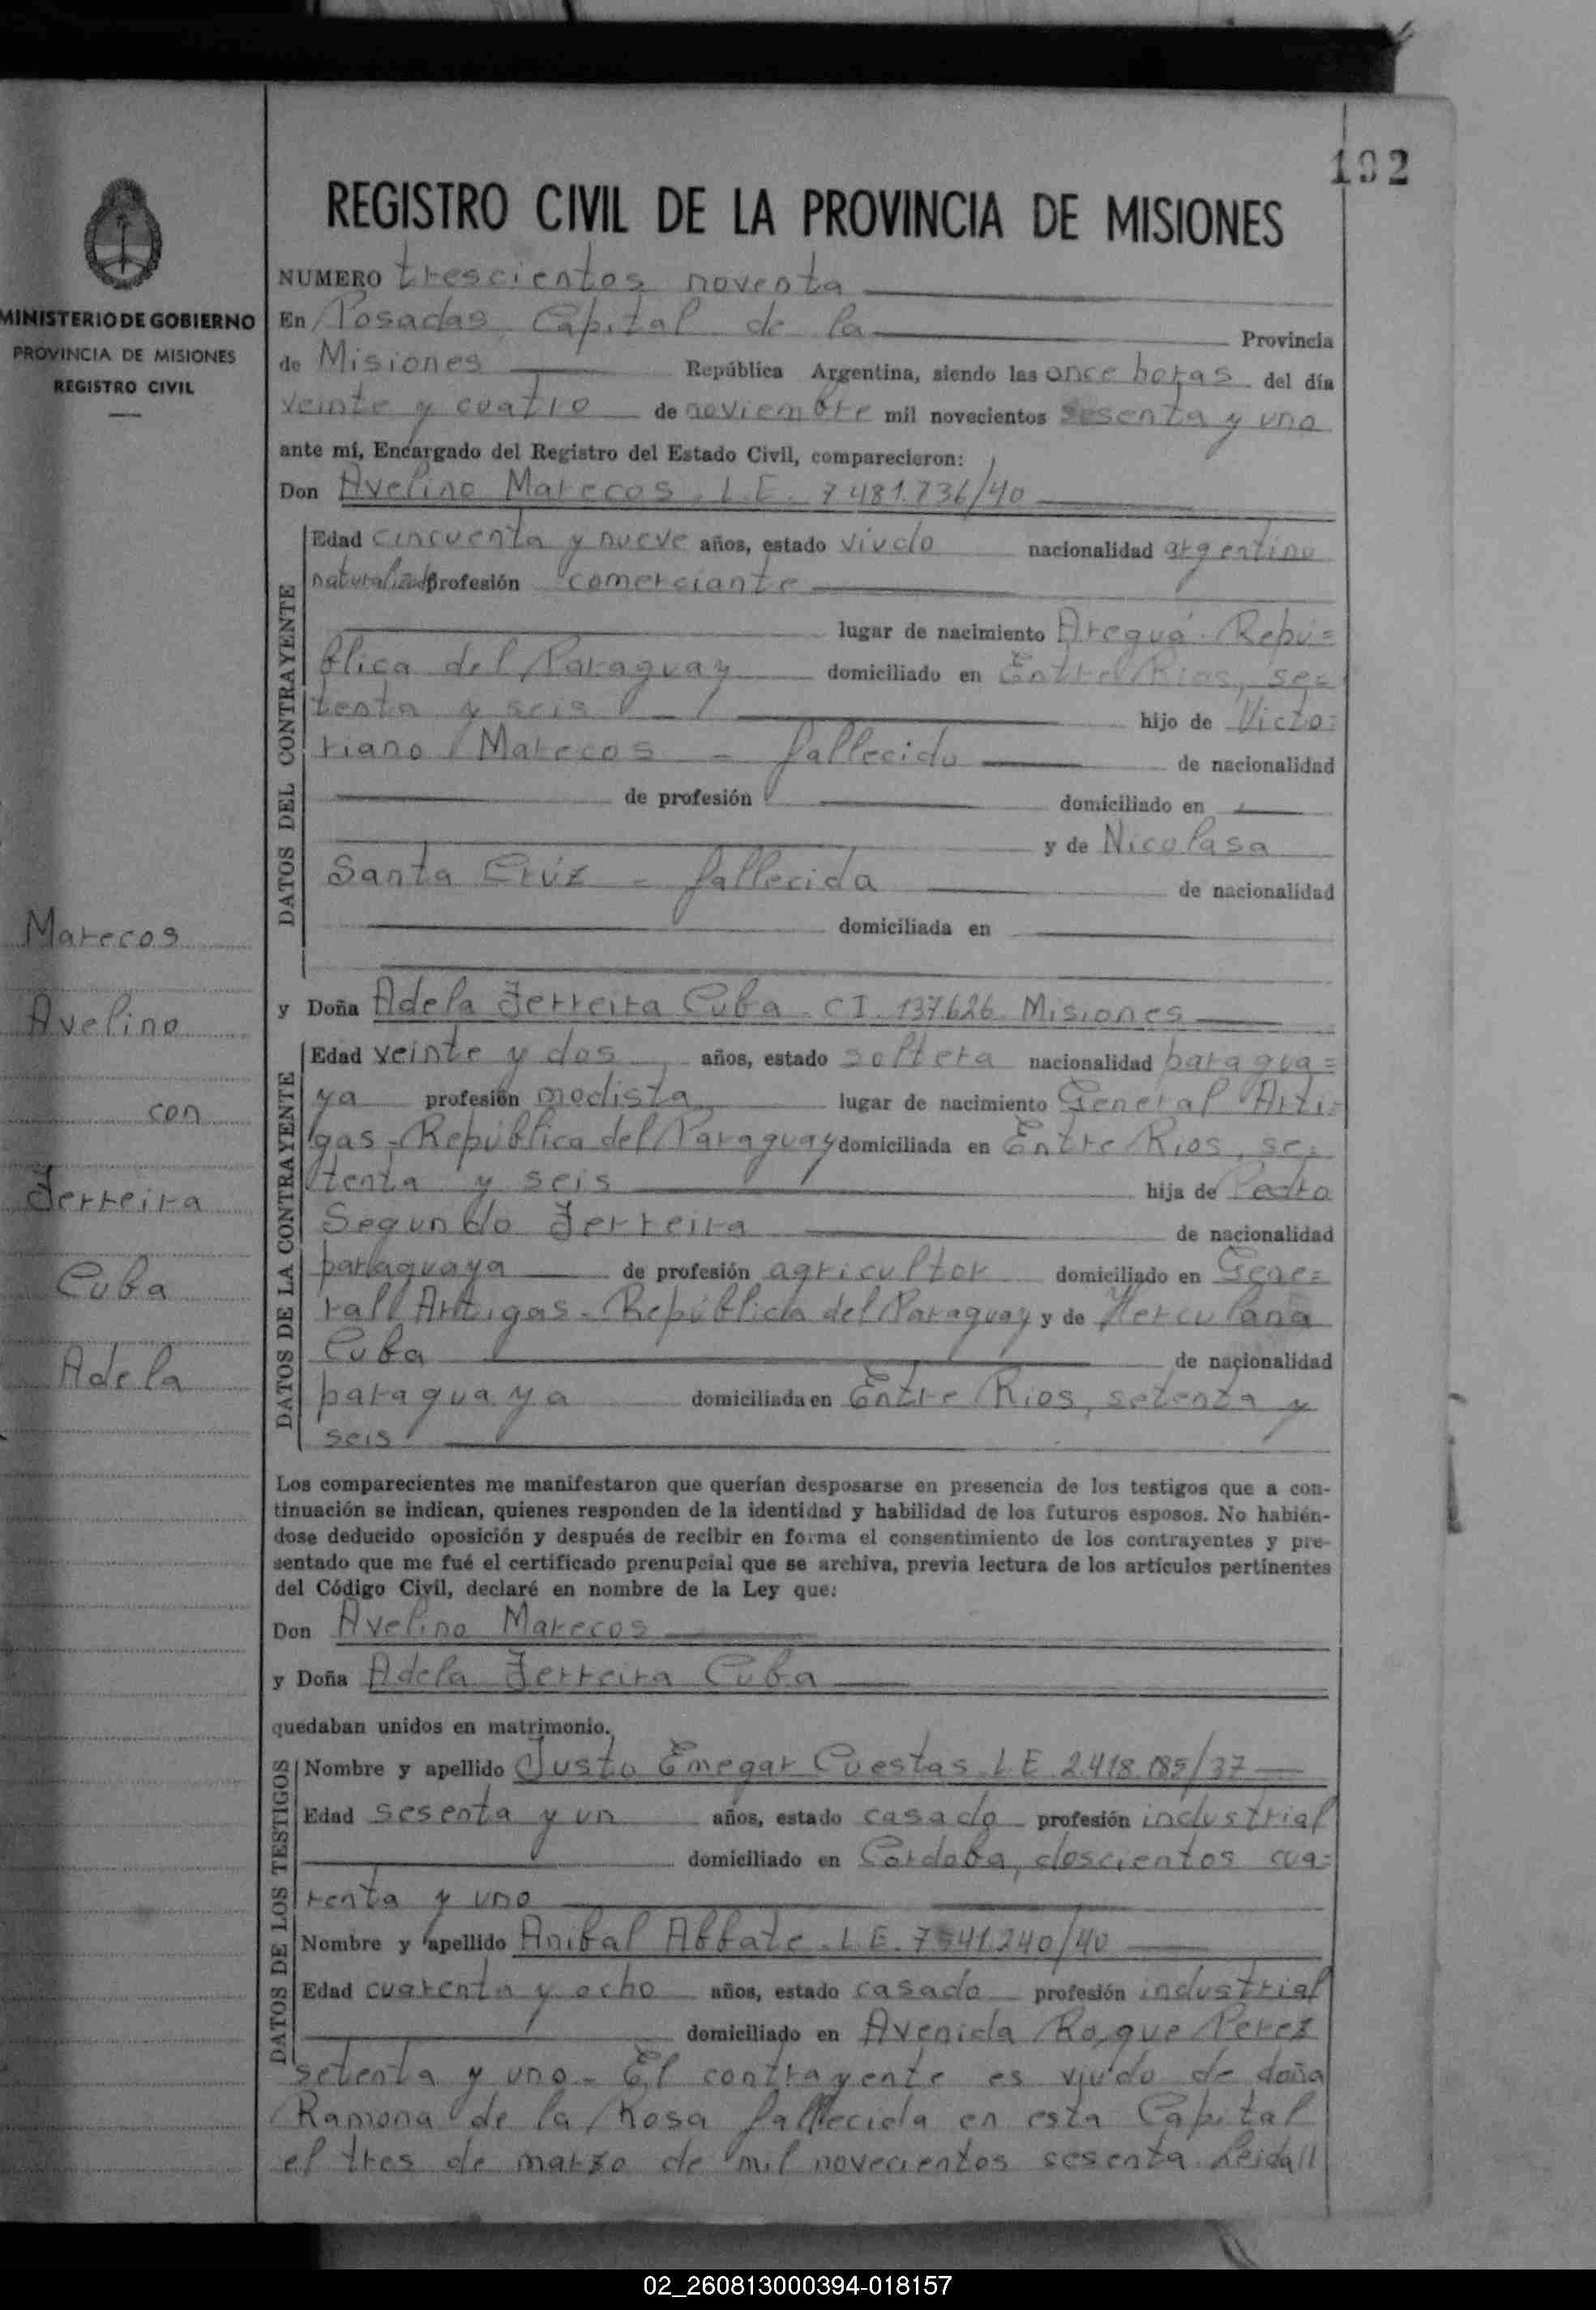 192
REGISTRO CIVIL DE LA PROVINCIA DE MISIONES
MINISTERIO DE GOBIERNO
PROVINCIA DE MISIONES
REGISTRO CIVIL
NUMERO trescientos noventa
En Posadas, Capital de la Provincia
de Misiones República Argentina, siendo las once horas del día
veinte y cuatro de noviembre mil novecientos sesenta y uno
ante mí, Encargado del Registro del Estado Civil, comparecieron:
Don Avelino Marecos. L.E. 7481.736/40
DATOS DEL CONTRAYENTE
Edad cincuenta y nueve años, estado viudo nacionalidad argentino
naturalizado profesión comerciante
lugar de nacimiento Areguá. Repú=
blica del Paraguay domiciliado en Entre Rios, se=
tenta y seis hijo de Victo=
riano Marecos - fallecido de nacionalidad
de profesión domiciliado en
y de Nicolasa
Santa Crúz - fallecida de nacionalidad
domiciliada en
Marecos
Avelino
con
Ferreira
Cuba
Adela
y Doña Adela Ferreira Cuba. CI. 137.626. Misiones
DATOS DE LA CONTRAYENTE
Edad veinte y dos años, estado soltera nacionalidad paragua=
ya profesión modista lugar de nacimiento General Arti-
gas - República del Paraguay domiciliada en Entre Rios, se=
tenta y seis hija de Pedro
Segundo Ferreira de nacionalidad
paraguaya de profesión agricultor domiciliado en Gene=
ral Artigas - República del Paraguay y de Herculana
Cuba de nacionalidad
paraguaya domiciliada en Entre Rios, setenta y
seis
Los comparecientes me manifestaron que querían desposarse en presencia de los testigos que a con-
tinuación se indican, quienes responden de la identidad y habilidad de los futuros esposos. No habién-
dose deducido oposición y después de recibir en forma el consentimiento de los contrayentes y pre-
sentado que me fué el certificado prenupcial que se archiva, previa lectura de los artículos pertinentes
del Código Civil, declaré en nombre de la Ley que:
Don Avelino Marecos
y Doña Adela Ferreira Cuba
quedaban unidos en matrimonio.
DATOS DE LOS TESTIGOS
Nombre y apellido Justo Emegar Cuestas. L.E. 2.418.185/37
Edad sesenta y un años, estado casado profesión industrial
domiciliado en Cordoba, doscientos cua=
renta y uno
Nombre y apellido Anibal Abbate. L.E. 7541.240/40
Edad cuarenta y ocho años, estado casado profesión industrial
domiciliado en Avenida Roque Perez
setenta y uno - El contrayente es viudo de doña
Ramona de la Rosa fallecida en esta Capital
el tres de marzo de mil novecientos sesenta. Leida//
02_260813000394-018157